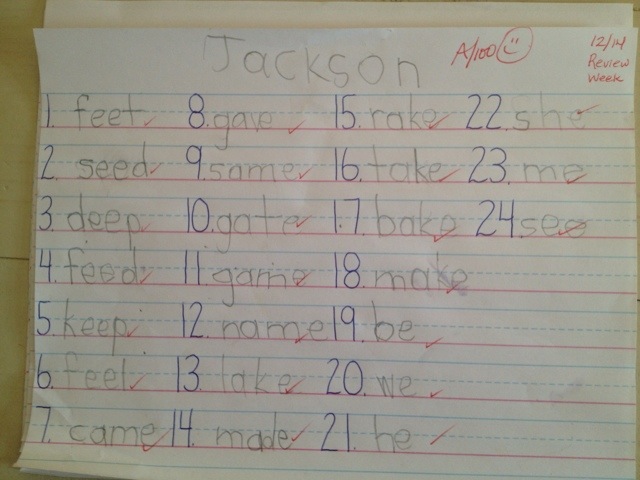 Jackson A/100 12/14
Review
Week
1. feet 8. gave 15. rake 22. she
2. seed 9. same 16. take 23. me
3. deep 10. gate 17. bake 24. see
4. feed 11. game 18. make
5. keep 12. name 19. be
6. feel 13. lake 20. we
7. came 14. made 21. he